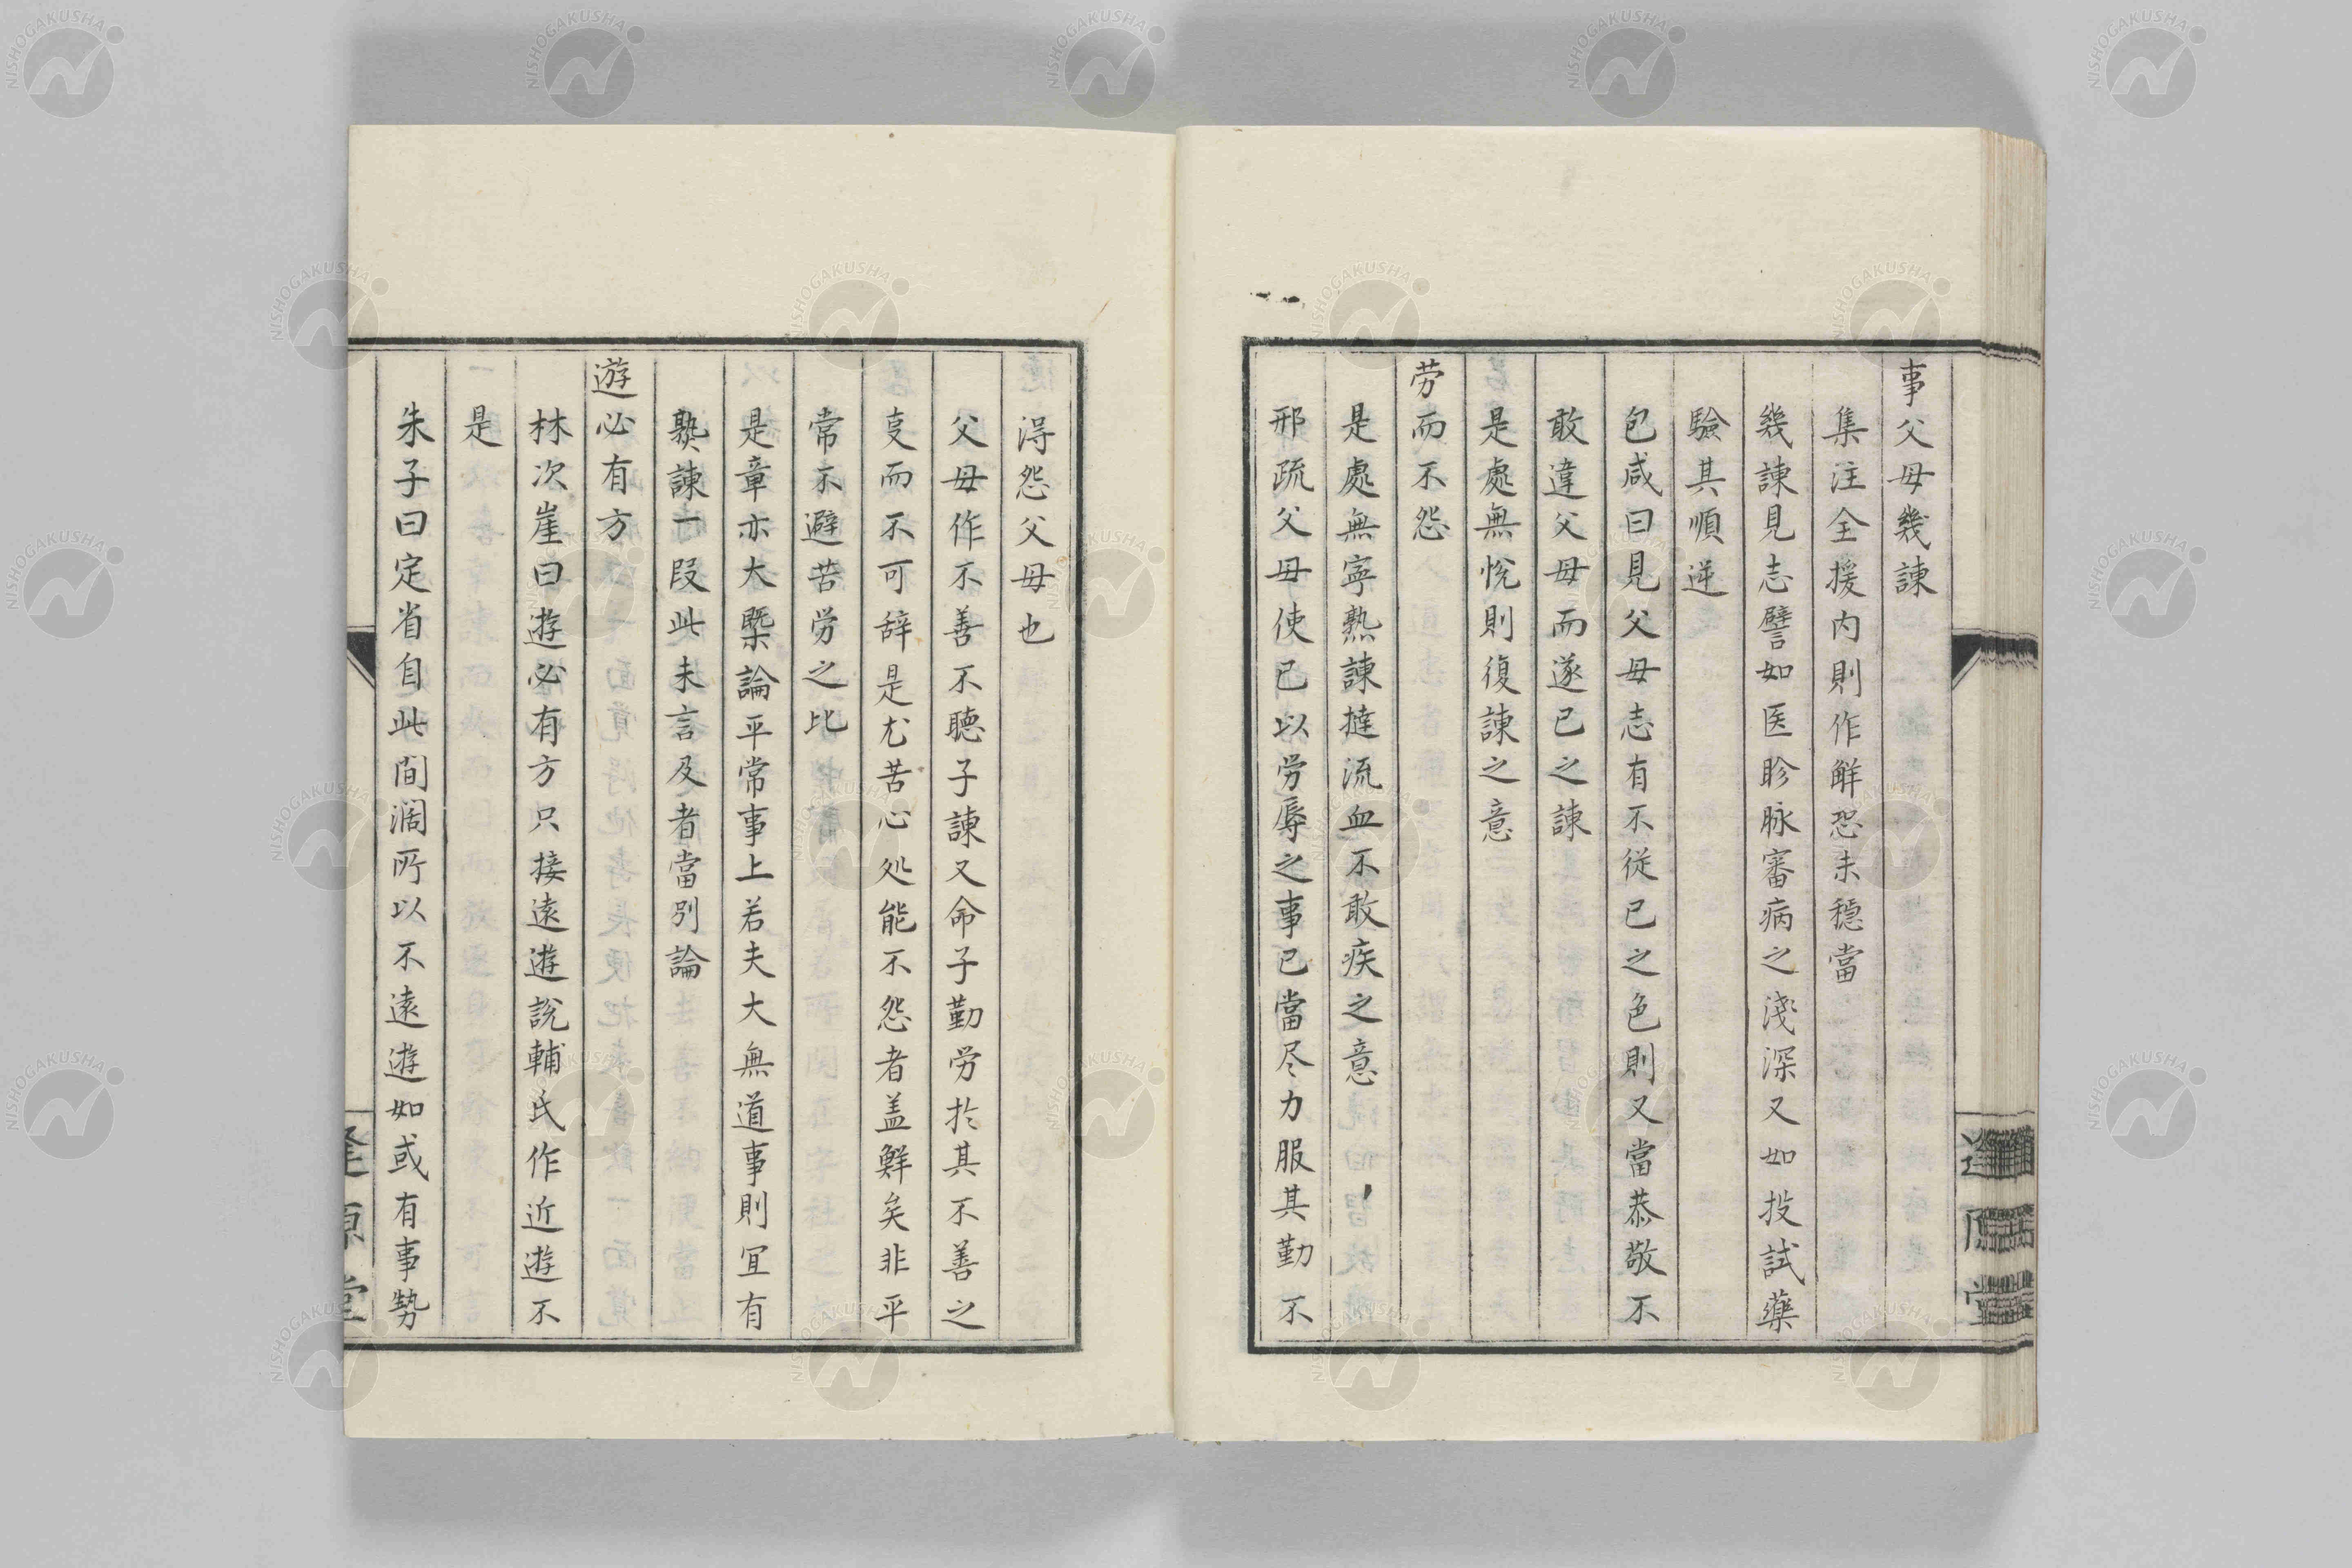 事父母幾諫
集注全援内則作解恐未穏當
幾諫見志譬如医眕脉審病之淺深又如投試藥
驗其順逆
包咸曰見父母志有不從已之色則又當恭敬不
敢違父母而遂已之諫
是處無悅則復諫之意
労而不怨
是處無寧熟諫撻流血不敢疾之意
邢疏父母使已以労辱之事已當尽力服其勤不
淂怨父母也
父母作不善不聽子諫又命子勤労於其不善之
叓而不可辞是尤苦心処能不怨者盖鮮矣非平
常不避苦労之比
是章亦大槩論平常事上若夫大無道事則冝有
熟諫一段此未言及者當別論
遊必有方
林次崖曰遊必有方只接遠遊說輔氏作近遊不
是
朱子曰定省自此間濶所以不遠遊如或有事勢
逢原堂
NISHOGAKUSHA